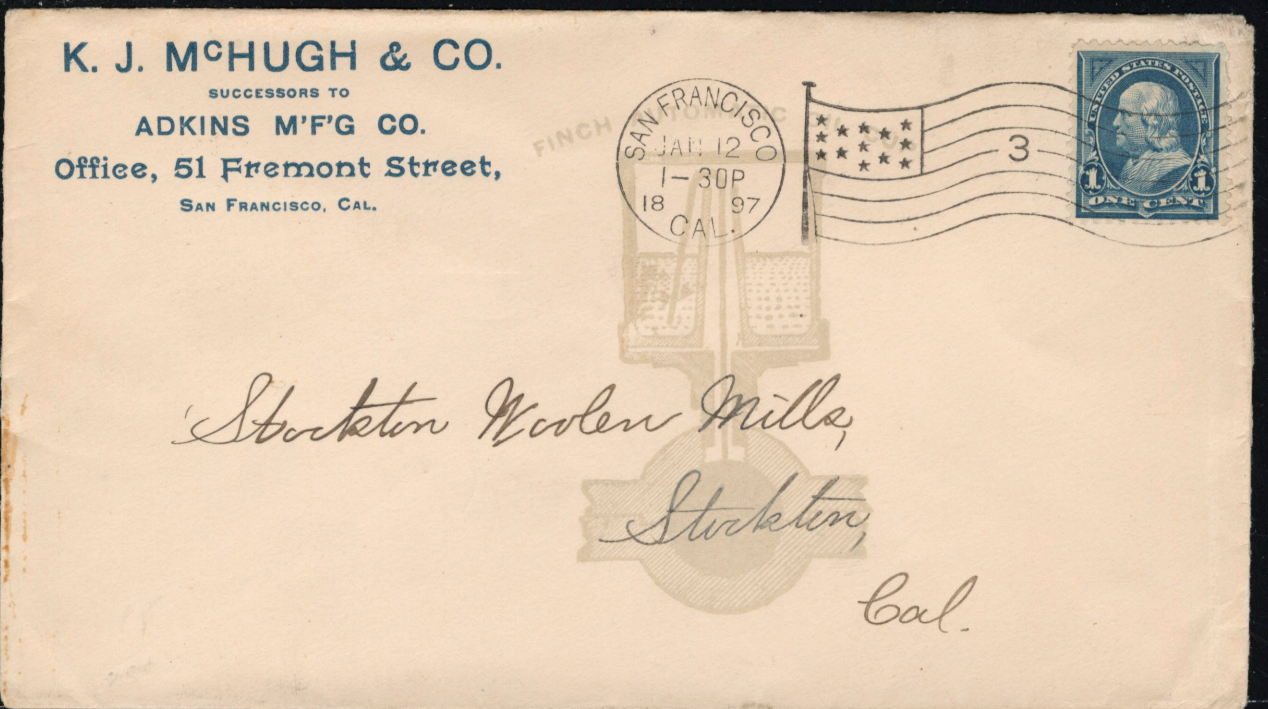 K. J. McHUGH & CO.
SUCCESSORS TO
ADKINS M'F'G CO.
Office, 51 Fremont Street,
SAN FRANCISCO, CAL.
FINCH AUTOMATIC
SAN FRANCISCO
JAN 12
1-30P
18 97
CAL.
3
UNITED STATES POSTAGE
1 1
ONE CENT
Stockton Woolen Mills,
Stockton,
Cal.